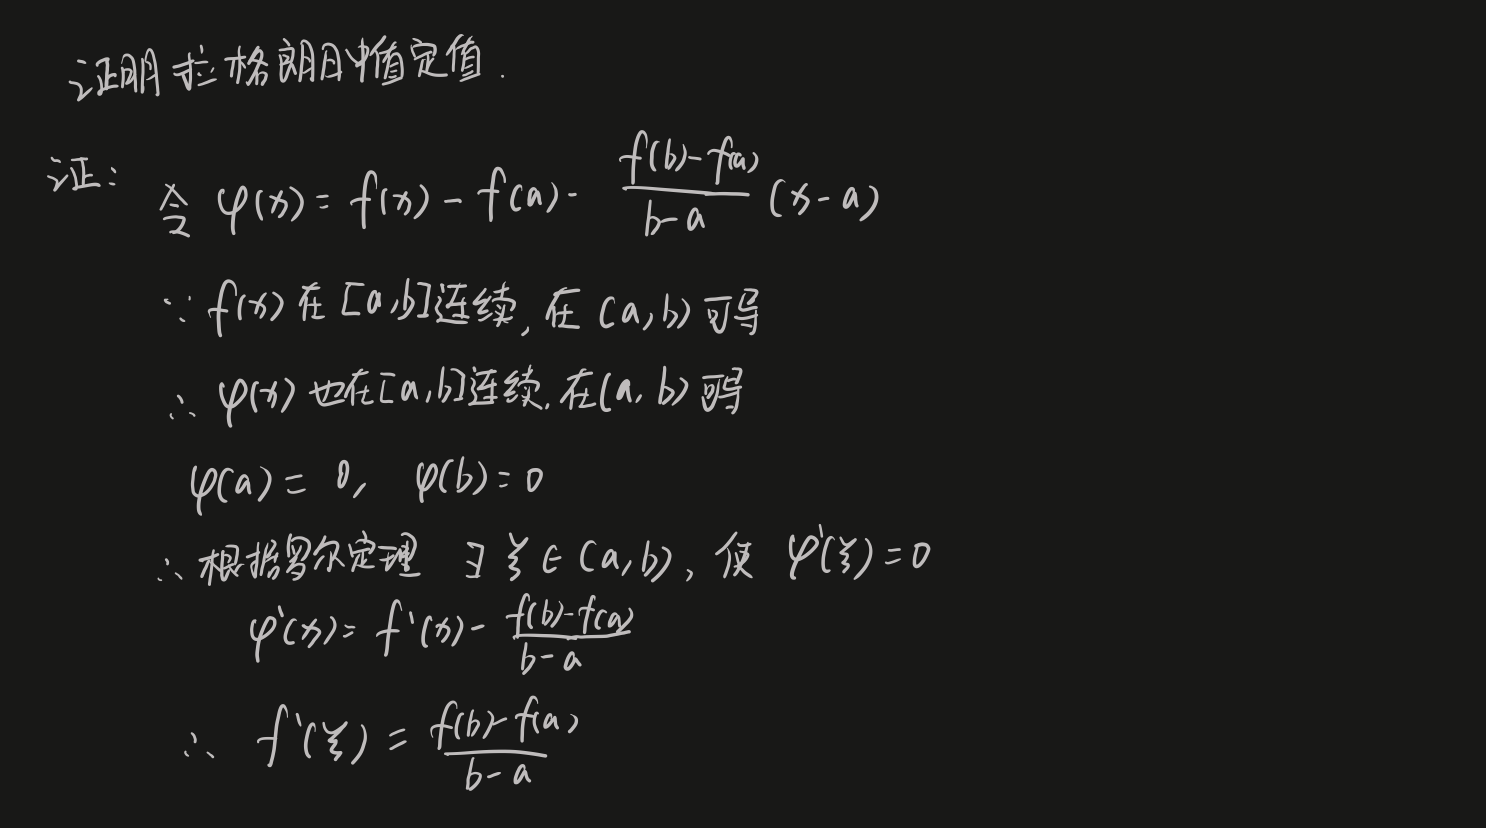 证明拉格朗日中值定值.
证: 令 φ(x) = f(x) - f(a) - \frac{f(b)-f(a)}{b-a} (x-a)
∵ f(x) 在 [a,b]连续, 在 (a,b) 可导
∴ φ(x) 也在[a,b]连续, 在(a,b) 可导
φ(a) = 0, φ(b) = 0
∴ 根据罗尔定理 ∃ ξ ∈ (a,b), 使 φ'(ξ) = 0
φ'(x) = f'(x) - \frac{f(b)-f(a)}{b-a}
∴ f'(ξ) = \frac{f(b)-f(a)}{b-a}